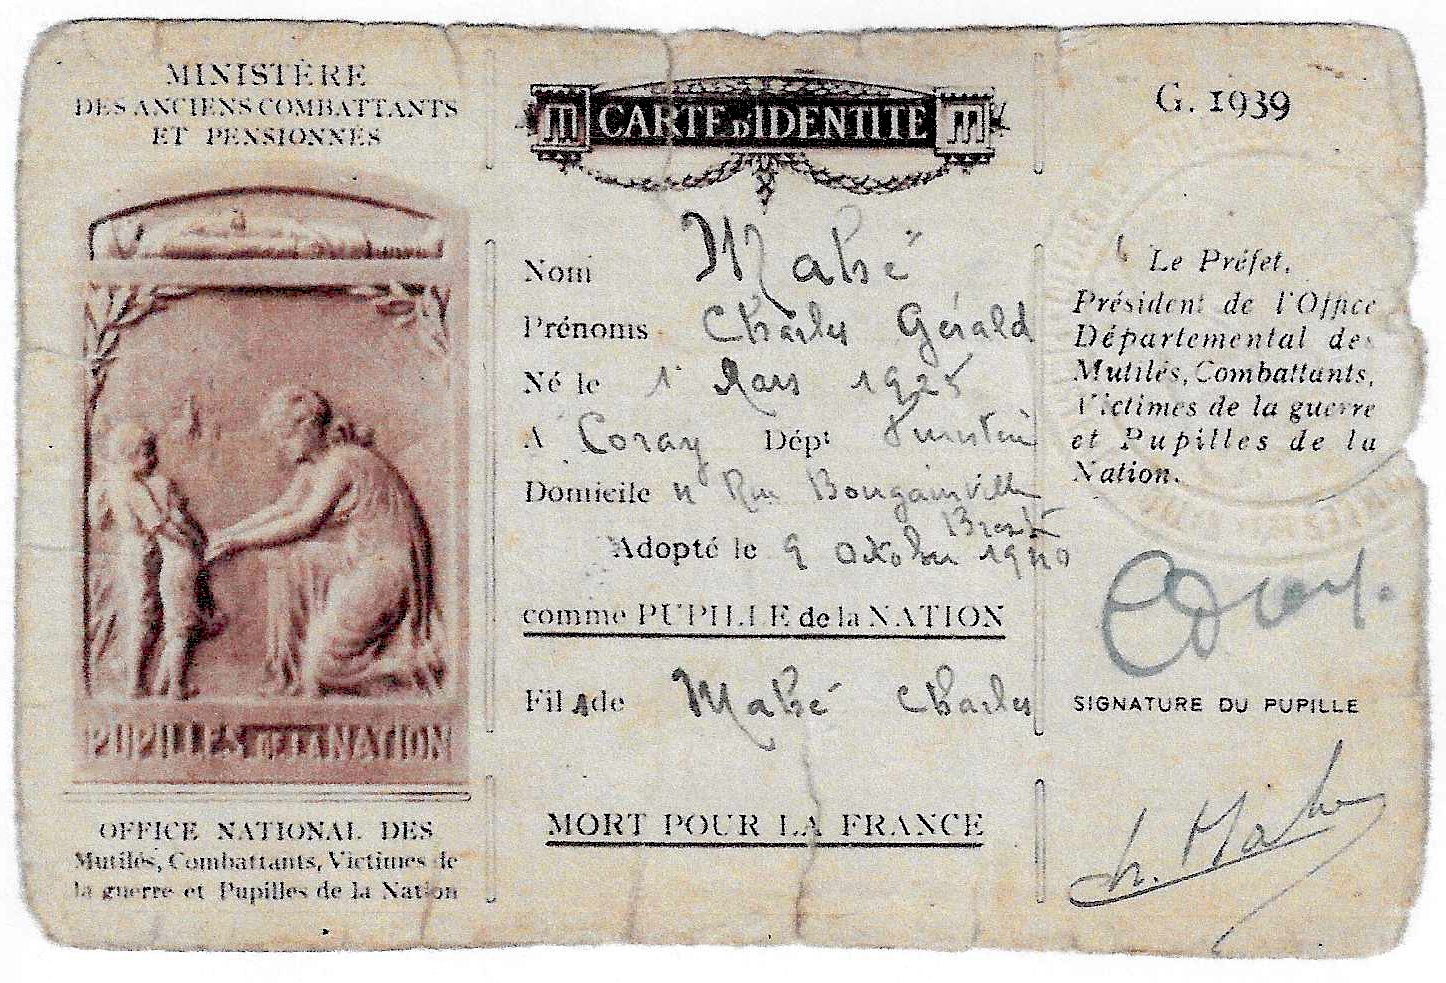 MINISTÈRE
DES ANCIENS COMBATTANTS
ET PENSIONNÉS
PUPILLES DE LA NATION
OFFICE NATIONAL DES
Mutilés, Combattants, Victimes de
la guerre et Pupilles de la Nation
CARTE D'IDENTITÉ
Nom Mahé
Prénoms Charles Gérald
Né le 1er Mars 1925
A Coray Dépt Finistère
Domicile 11 Rue Bougainville
Brest
Adopté le 9 Octobre 1940
comme PUPILLE de la NATION
Fils de Mahé Charles
MORT POUR LA FRANCE
G. 1939
Le Préfet,
Président de l'Office
Départemental des
Mutilés, Combattants,
Victimes de la guerre
et Pupilles de la
Nation.
SIGNATURE DU PUPILLE
Ch. Mahé